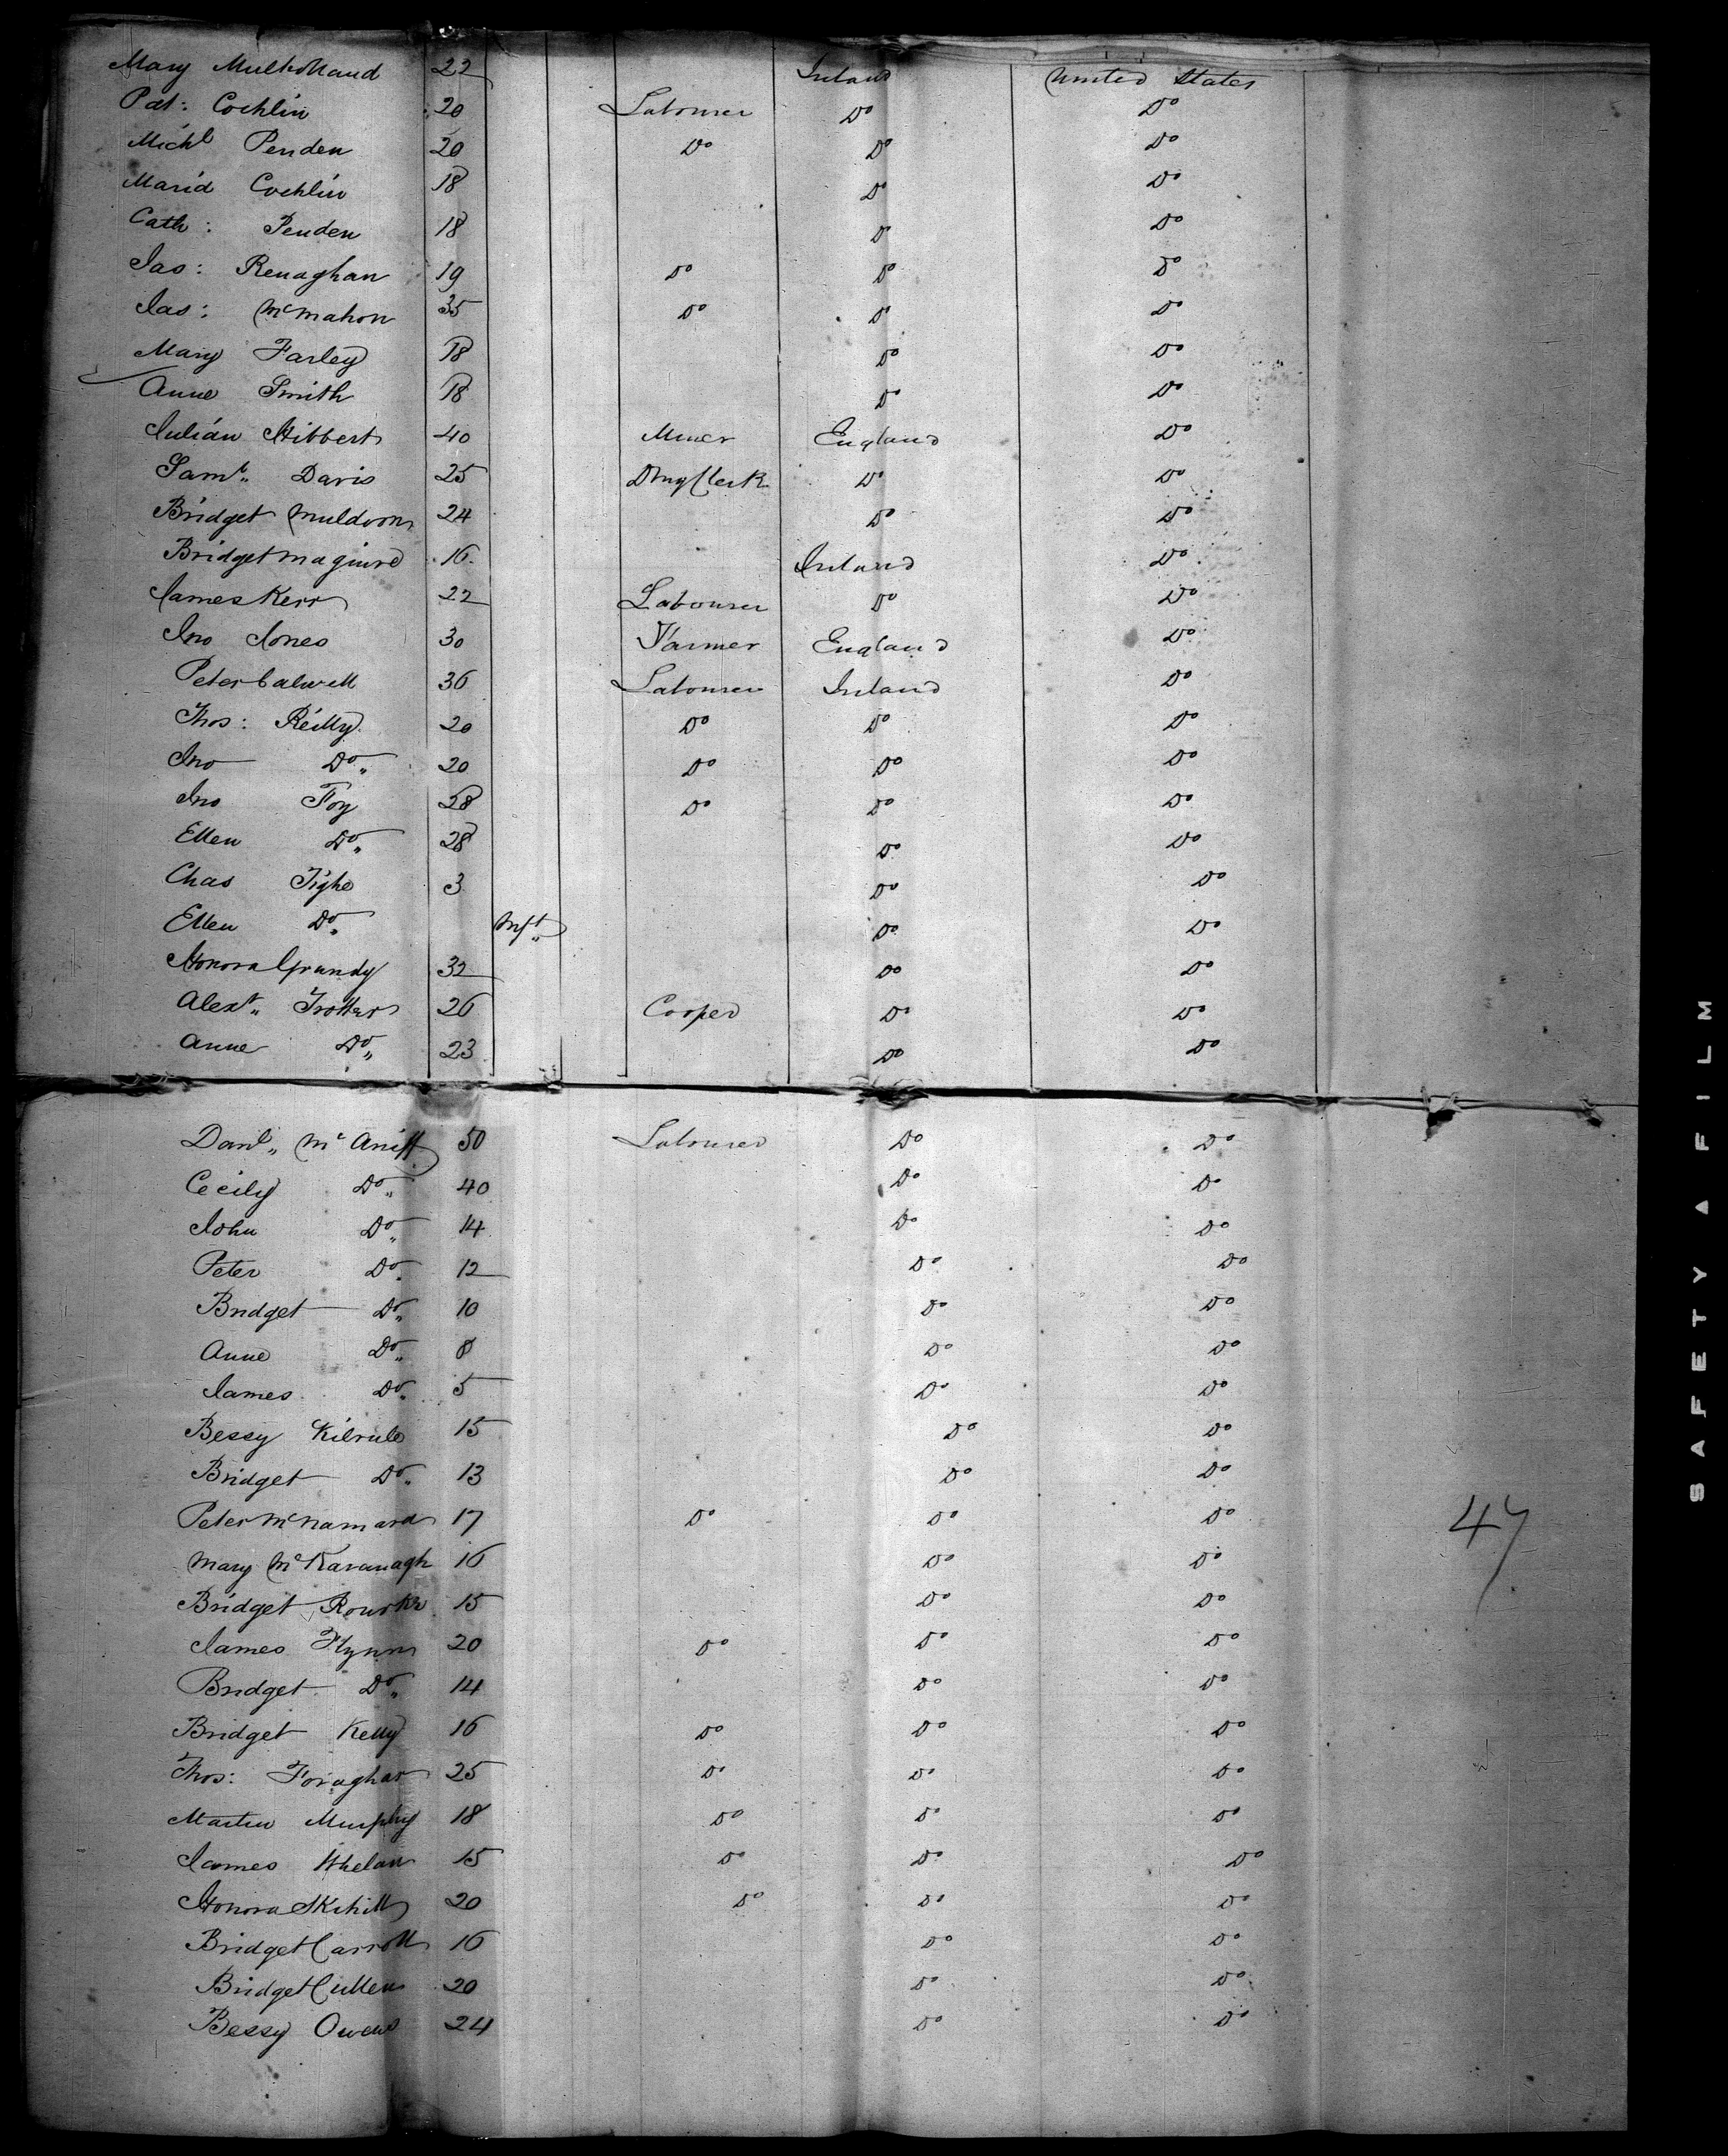 Mary Mulholland 22 Ireland United States
Pat: Cochlin 20 Labourer Do Do
Michl Penden 20 Do Do Do
Maria Cochlin 18 Do Do
Cath: Penden 18 Do Do
Jas: Renaghan 19 Do Do Do
Jas: McMahon 35 Do Do Do
Mary Farley 18 Do Do
Anne Smith 18 Do Do
Julian Hibbert 40 Miner England Do
Saml. Davis 25 Drug Clerk Do Do
Bridget Muldoon 24 Do Do
Bridget Maguire 16 Ireland Do
James Kerr 22 Labourer Do Do
Jno Jones 30 Farmer England Do
Peter Calwell 36 Labourer Ireland Do
Thos: Reilly 20 Do Do Do
Jno Do 20 Do Do Do
Jno Foy 28 Do Do Do
Ellen Do 28 Do Do
Chas Tighe 3 Do Do
Ellen Do Inft Do Do
Honora Grandy 32 Do Do
Alexr Trotter 26 Cooper Do Do
Anne Do 23 Do Do
Danl McAniff 50 Labourer Do Do
Cecily Do 40 Do Do
John Do 14 Do Do
Peter Do 12 Do Do
Bridget Do 10 Do Do
Anne Do 8 Do Do
James Do 5 Do Do
Bessy Kilrule 15 Do Do
Bridget Do 13 Do Do
Peter McNamara 17 Do Do Do
Mary McKavanagh 16 Do Do
Bridget Rourke 15 Do Do
James Flynn 20 Do Do Do
Bridget Do 14 Do Do
Bridget Kelly 16 Do Do Do
Thos: Foraghar 25 Do Do Do
Martin Murphy 18 Do Do Do
James Whelan 15 Do Do Do
Honora Skihill 20 Do Do Do
Bridget Carroll 16 Do Do
Bridget Cullen 20 Do Do
Bessy Owens 24 Do Do
47
SAFETY A FILM